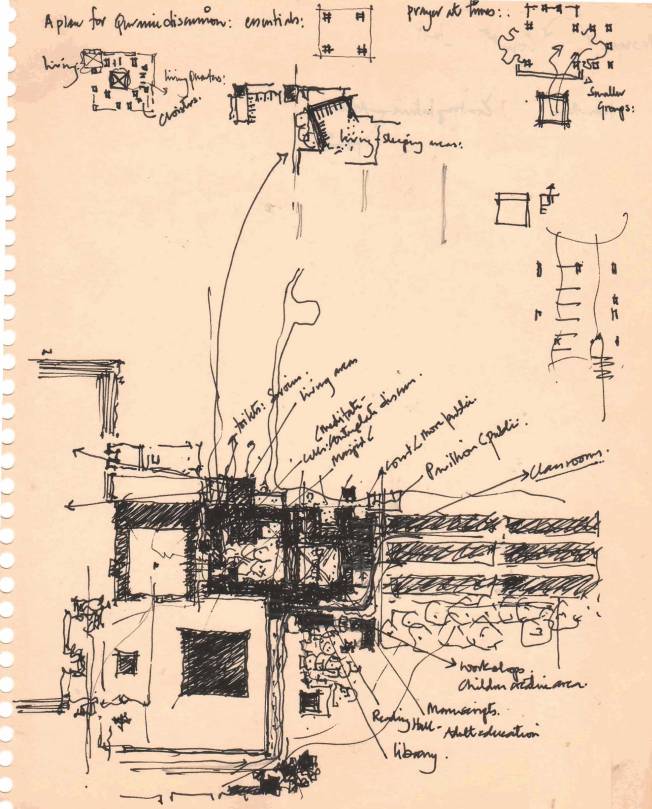 A plan for Quranic discussion: essentials:
prayer at times:.
living
living quarters:
cloisters.
Smaller
Groups:
living + sleeping areas:
toilets: Services.
living areas
(meditate-
discuss.
Masjid (
court (more public
Pavillion (public.
Classrooms.
Workshops.
Children creative area.
Manuscripts.
Reading Hall-
Adult education
library.